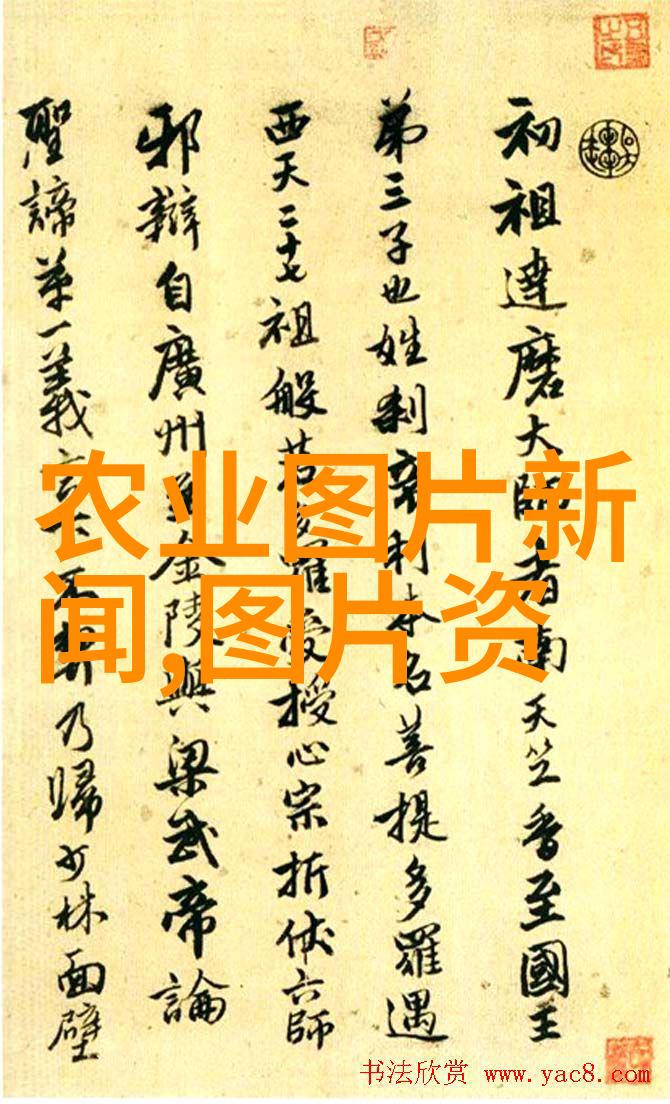 初祖達磨大師者南天竺香至國王
第三子也姓刹帝利本名菩提多羅遇
西天二十七祖般若多羅受授心宗折伏六師
邪辯自廣州至金陵與梁武帝論
聖諦第一義言下不契乃歸少林面壁
农业图片新
闻,图片资
书法欣赏 www.yac8.com